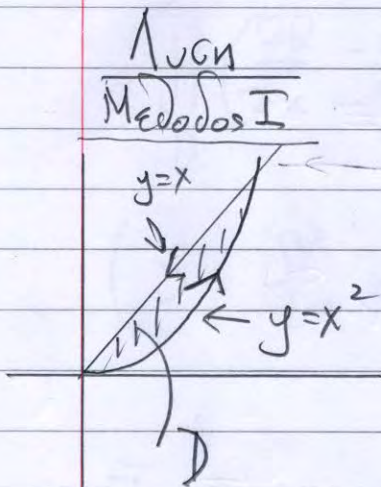 Λυση
Μεθοδος I
y=x
y=x²
D